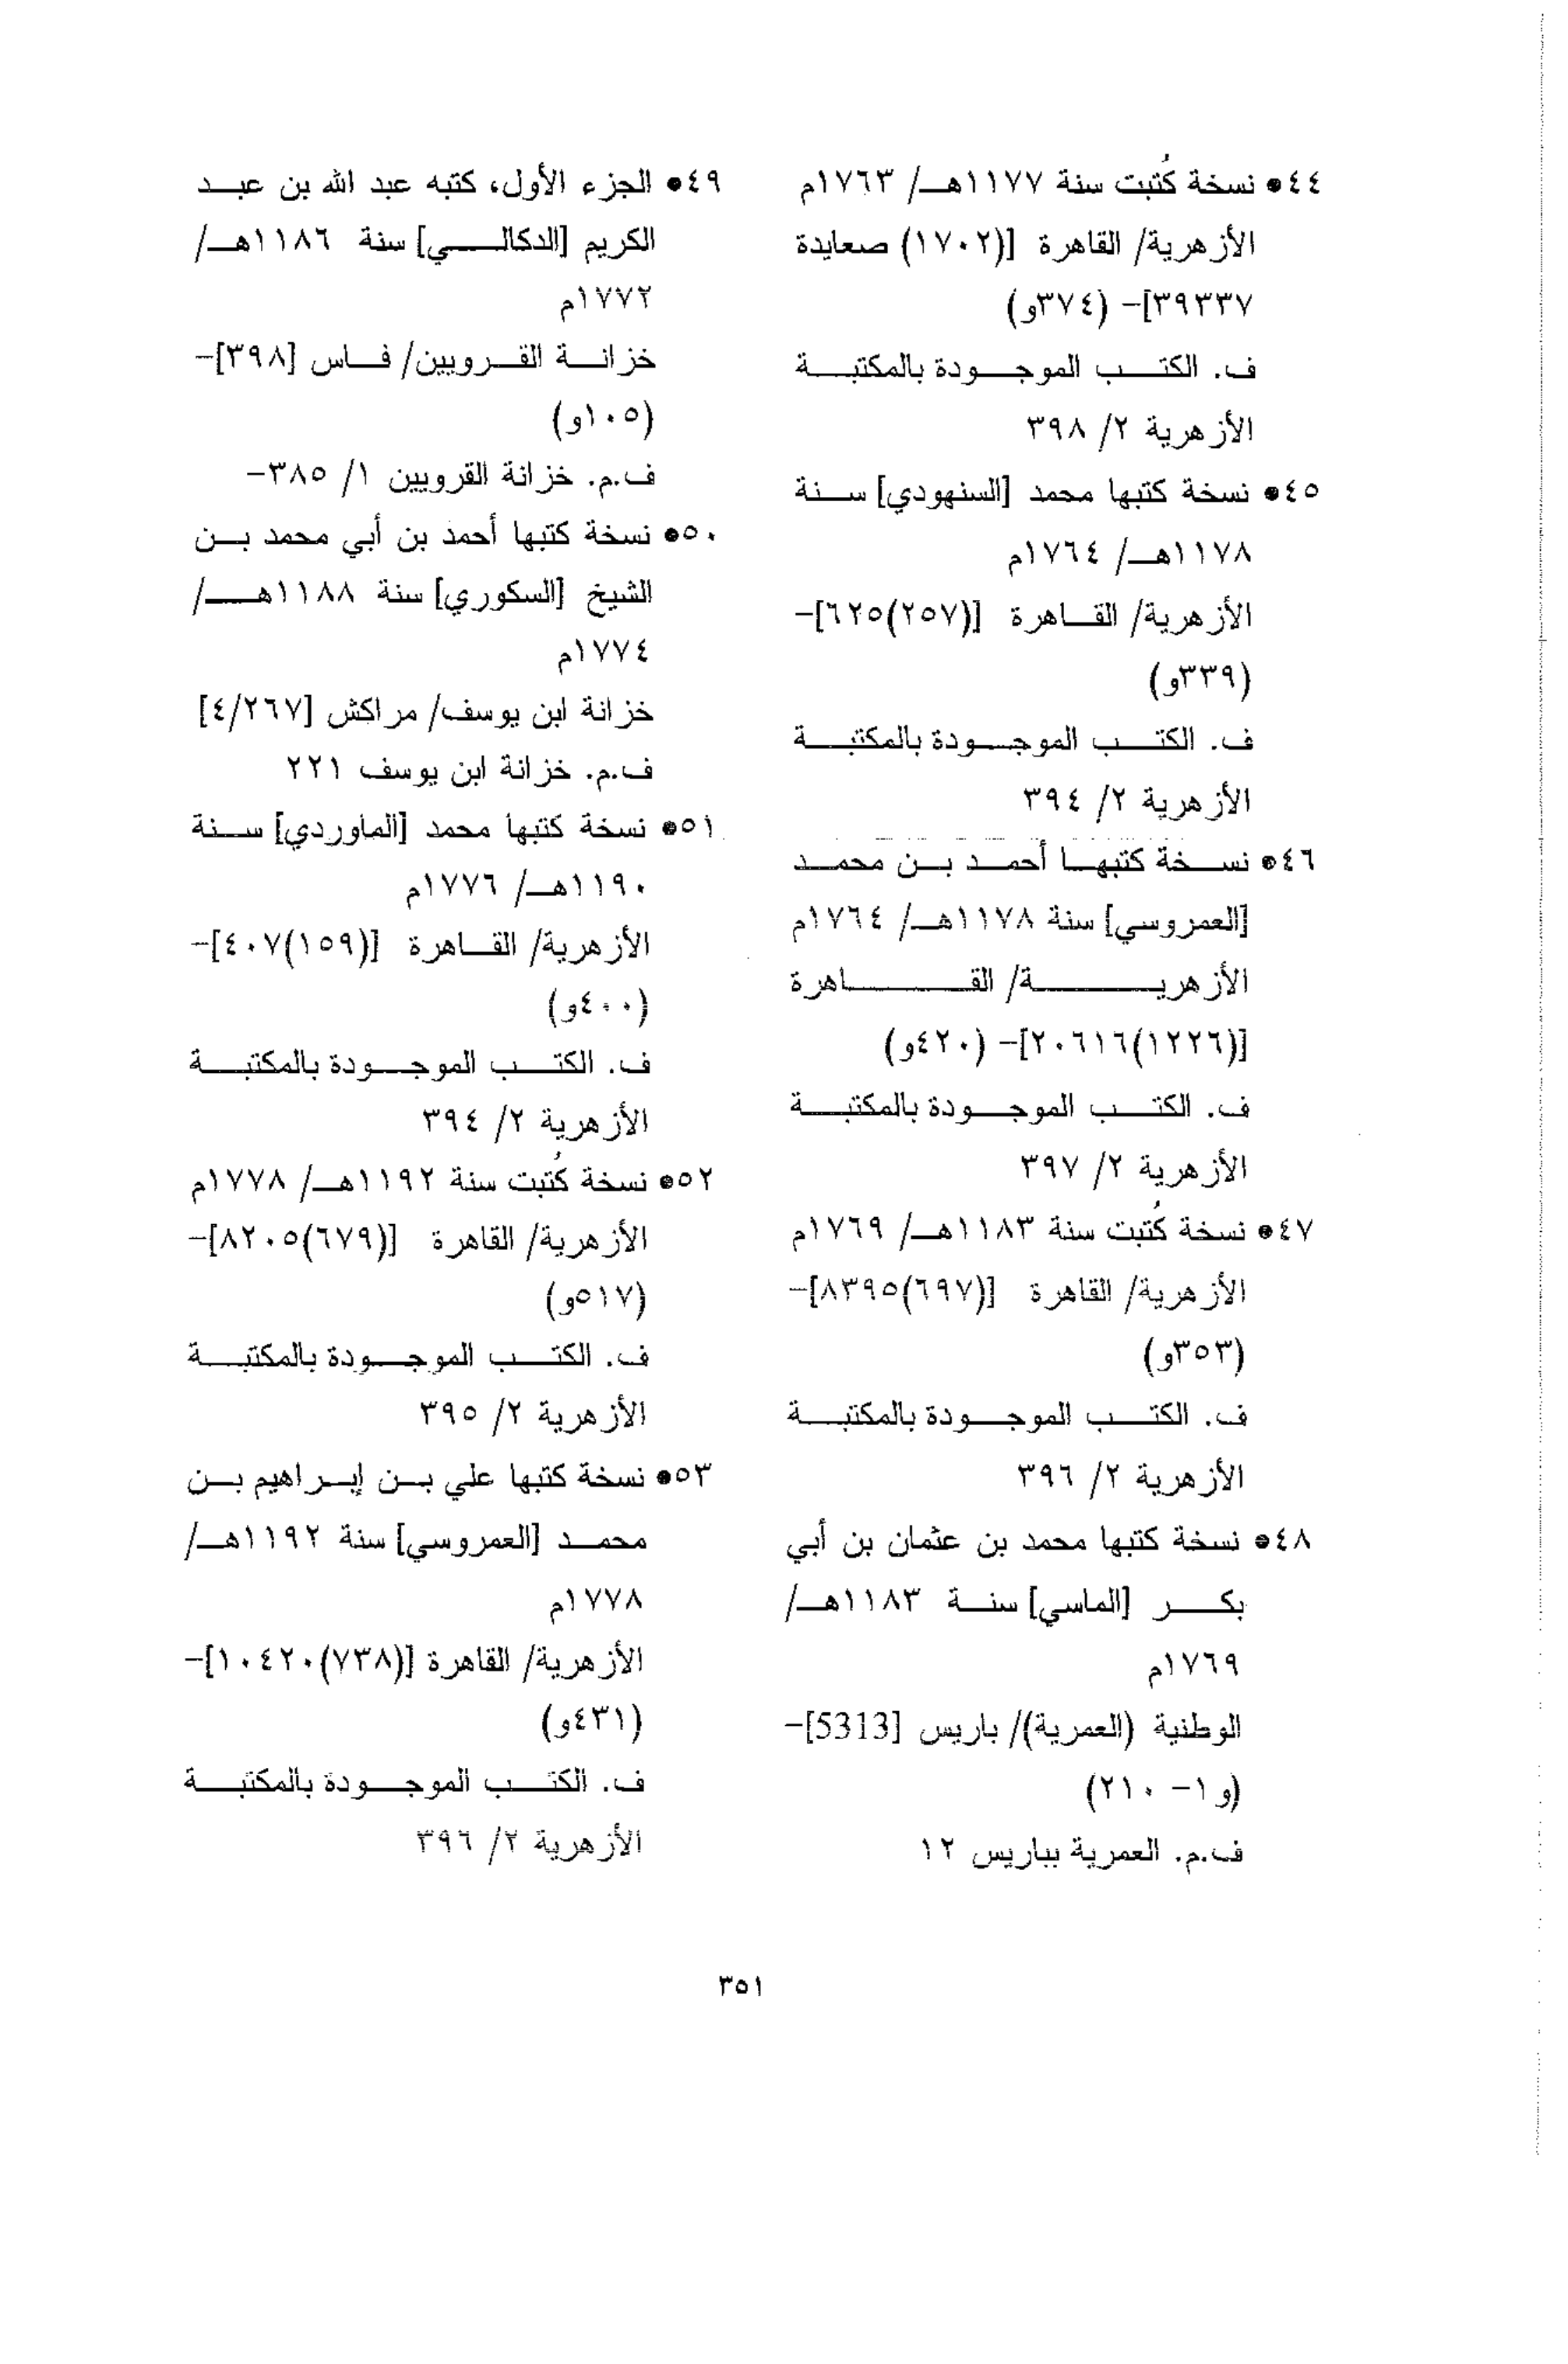 ٤٤• نسخة كُتبت سنة ١١٧٧هـ/ ١٧٦٣م
الأزهرية/ القاهرة [(١٧٠٢) صعايدة
٣٩٣٣٧]- (٣٧٤و)
ف. الكتب الموجودة بالمكتبة
الأزهرية ٢/ ٣٩٨
٤٥• نسخة كتبها محمد [السنهودي] سنة
١١٧٨هـ/ ١٧٦٤م
الأزهرية/ القاهرة [(٢٥٧)٦٢٥]-
(٣٣٩و)
ف. الكتب الموجودة بالمكتبة
الأزهرية ٢/ ٣٩٤
٤٦• نسخة كتبها أحمد بن محمد
[العمروسي] سنة ١١٧٨هـ/ ١٧٦٤م
الأزهرية/ القاهرة
[(١٢٢٦)٢٠٦١٦]- (٤٢٠و)
ف. الكتب الموجودة بالمكتبة
الأزهرية ٢/ ٣٩٧
٤٧• نسخة كُتبت سنة ١١٨٣هـ/ ١٧٦٩م
الأزهرية/ القاهرة [(٦٩٧)٨٣٩٥]-
(٣٥٣و)
ف. الكتب الموجودة بالمكتبة
الأزهرية ٢/ ٣٩٦
٤٨• نسخة كتبها محمد بن عثمان بن أبي
بكر [الماسي] سنة ١١٨٣هـ/
١٧٦٩م
الوطنية (العمرية)/ باريس [5313]-
(و١- ٢١٠)
ف.م. العمرية بباريس ١٢
٤٩• الجزء الأول، كتبه عبد الله بن عبد
الكريم [الدكالي] سنة ١١٨٦هـ/
١٧٧٢م
خزانة القرويين/ فاس [٣٩٨]-
(١٠٥و)
ف.م. خزانة القرويين ١/ ٣٨٥-
٥٠• نسخة كتبها أحمد بن أبي محمد بن
الشيخ [السكوري] سنة ١١٨٨هـ/
١٧٧٤م
خزانة ابن يوسف/ مراكش [٤/٢٦٧]
ف.م. خزانة ابن يوسف ٢٢١
٥١• نسخة كتبها محمد [الماوردي] سنة
١١٩٠هـ/ ١٧٧٦م
الأزهرية/ القاهرة [(١٥٩)٤٠٧]-
(٤٠٠و)
ف. الكتب الموجودة بالمكتبة
الأزهرية ٢/ ٣٩٤
٥٢• نسخة كُتبت سنة ١١٩٢هـ/ ١٧٧٨م
الأزهرية/ القاهرة [(٦٧٩)٨٢٠٥]-
(٥١٧و)
ف. الكتب الموجودة بالمكتبة
الأزهرية ٢/ ٣٩٥
٥٣• نسخة كتبها علي بن إبراهيم بن
محمد [العمروسي] سنة ١١٩٢هـ/
١٧٧٨م
الأزهرية/ القاهرة [(٧٣٨)١٠٤٢٠]-
(٤٣١و)
ف. الكتب الموجودة بالمكتبة
الأزهرية ٢/ ٣٩٦
٣٥١